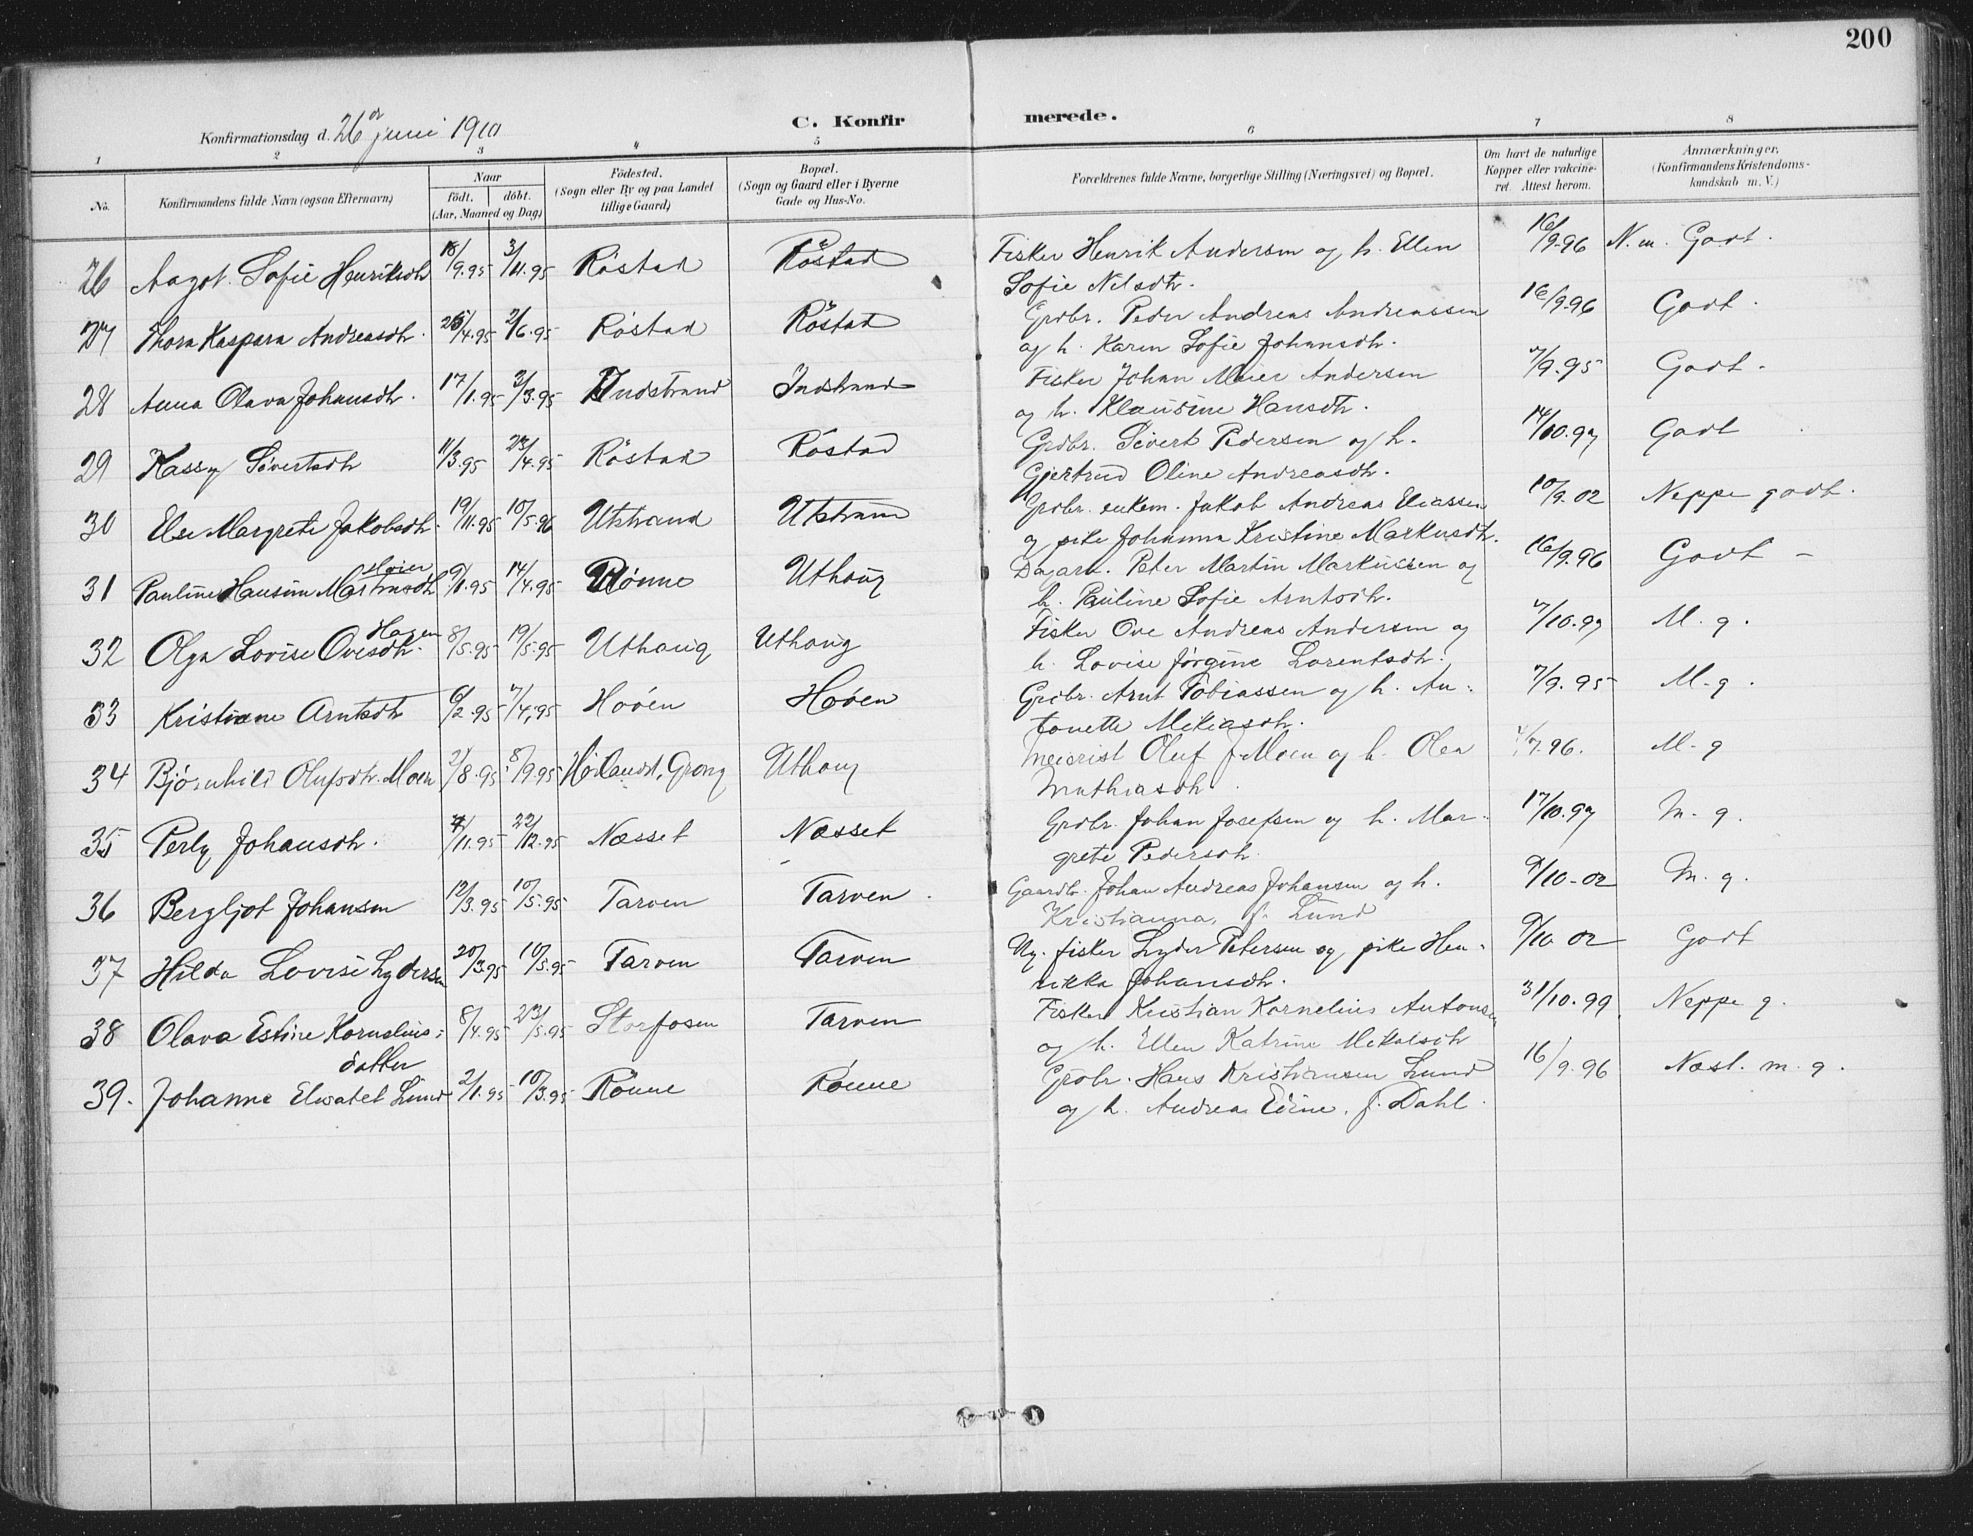 200
Konfirmationsdag d. 26de juni 1910
C. Konfirmerede.
1 2 3 4 5 6 7 8
No.
Konfirmandens fulde Navn (ogsaa Efternavn)
Naar
födt. döbt.
(Aar, Maaned og Dag)
Födested.
(Sogn eller By og paa Landet
tillige Gaard)
Bopæl.
(Sogn og Gaard eller i Byerne
Gade og Hus-No.
Forældrenes fulde Navne, borgerlige Stilling (Næringsvei) og Bopæl.
Om havt de naturlige
Kopper eller vakcine-
ret. Attest herom.
Anmærkninger.
(Konfirmandens Kristendoms-
kundskab m. V.)
26 Aagot Sofie Henriksdtr 18/9.95 3/11.95 Röstad Röstad Fisker Henrik Andersen og h. Ellen 16/9-96 N. m. Godt.
Sofie Nilsdtr.
27 Thora Kaspara Andreasdtr. 25/4.95 2/6.95 Röstad Röstad Grdbr. Peder Andreas Andreassen 16/9.96 Godt.
og h. Karen Sofie Johansdtr.
28 Anna Olava Johansdtr. 17/1.95 3/3.95 Indstrand Indstrand Fisker Johan Meier Andersen 7/9.95 Godt.
og h. Klausine Hansdtr.
29 Kassy Sivertsdtr 11/3.95 23/4.95 Röstad Röstad Grdbr. Sivert Pedersen og h. 14/10.97 Godt
Gjertrud Oline Andreasdtr.
30 Else Margrete Jakobsdtr. 19/11.95 10/5.96 Utstrand Utstrand Grdbr. enkem. Jakob Andreas Eliassen 10/9.02 Neppe godt.
og pike Johanna Kristine Markusdtr.
31 Pauline Hansine Martinsdtr Høier 9/1.95 14/4.95 Rønne Uthaug Dagarb. Peter Martin Markussen og 16/9.96 Godt –
h. Pauline Sofie Arntsdtr.
32 Olga Lovise Ovesdtr. Hagen 8/5.95 19/5.95 Uthaug Uthaug Fisker Ove Andreas Andersen og 7/10.97 M. g.
h. Lovise Jørgine Lorentsdtr.
33 Kristiane Arntsdtr 6/2.95 7/4.95 Hoöen Hoöen Grdbr. Arnt Tobiassen og h. An- 7/9.95 M. g.
tonette Mikiasdtr.
34 Bjørnhild Olufsdtr. Moen 21/8.95 8/9.95 Höilandet, Grong Uthaug Meierist Oluf J Moen og h. Olea 96. M. g
Mathiasdtr.
35 Perly Johansdtr. 7/11.95 22/12.95 Næsset Næsset Grdbr. Johan Josefsen og h. Mar- 17/10.97 M. g.
grete Pedersdtr.
36 Bergljot Johansen 12/3.95 10/5.95 Tarven Tarven. Gaardb. Johan Andreas Johansen og h. 9/10-02 M. g.
Kristianna, f. Lund
37 Hilda Lovise Lydersen 20/3.95 10/5.95 Tarven Tarven Ug. fisker Lyder Petersen og pike Hen- 9/10 02 Godt
rikka Johansdtr.
38 Olava Estine Kornelius- 8/4.95 23/5.95 Storfosen Tarven Fisker Kristian Kornelius Antonsen 31/10.99 Neppe g.
datter og h. Ellen Katrine Mikalsdtr
39. Johanne Elisabet Lund 2/1.95 10/3.95 Rönne Rönne Grdbr. Hans Kristiansen Lund 16/9.96 Næst. m. g.
og h. Andrea Edine, f. Dahl.